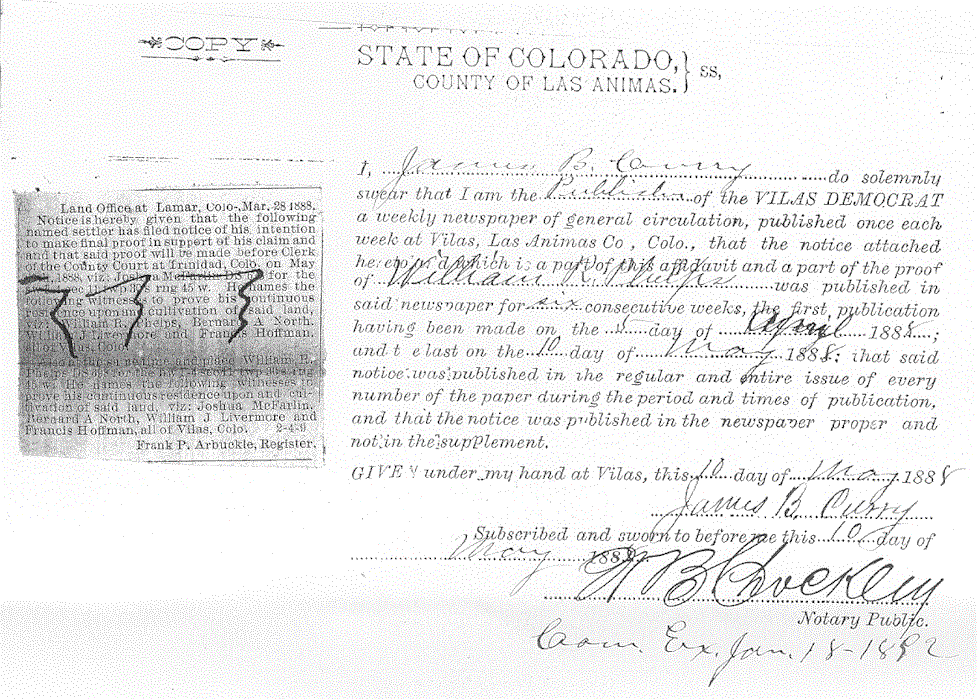 COPY
STATE OF COLORADO,
COUNTY OF LAS ANIMAS. } SS,
Land Office at Lamar, Colo-, Mar. 28 1888.
Notice is hereby given that the following
named settler has filed notice of his intention
to make final proof in support of his claim and
and that said proof will be made before Clerk
of the County Court at Trinidad, Colo. on May
1888, viz: Joshua for the
rng 45 w. He names the
following witnesses to prove his continuous
residence upon and cultivation of said land,
viz: William R. Phelps, Bernard A North,
William J Livermore and Francis Hoffman,
all of Vilas Colo.
time and place William R.
Phelps
45 w. He names the following witnesses to
prove his continuous residence upon and cul-
tivation of said land, viz: Joshua McFarlin,
Bernard A North, William J Livermore and
Francis Hoffman, all of Vilas, Colo. 2-4-9
Frank P. Arbuckle, Register.
I, James B. Curry do solemnly
swear that I am the Publisher of the VILAS DEMOCRAT
a weekly newspaper of general circulation, published once each
week at Vilas, Las Animas Co , Colo., that the notice attached
hereto and which is a part of this affidavit and a part of the proof
of William R. Phelps was published in
said newspaper for six consecutive weeks, the first publication
having been made on the day of April 1888;
and t e last on the 10 day of May 1888; that said
notice was published in the regular and entire issue of every
number of the paper during the period and times of publication,
and that the notice was published in the newspaper proper and
not in the supplement.
GIVEN under my hand at Vilas, this 10 day of May 1888
James B. Curry
Subscribed and sworn to before me this 10 day of
May 1888.
Notary Public.
Com. Ex. Jan. 18-1892